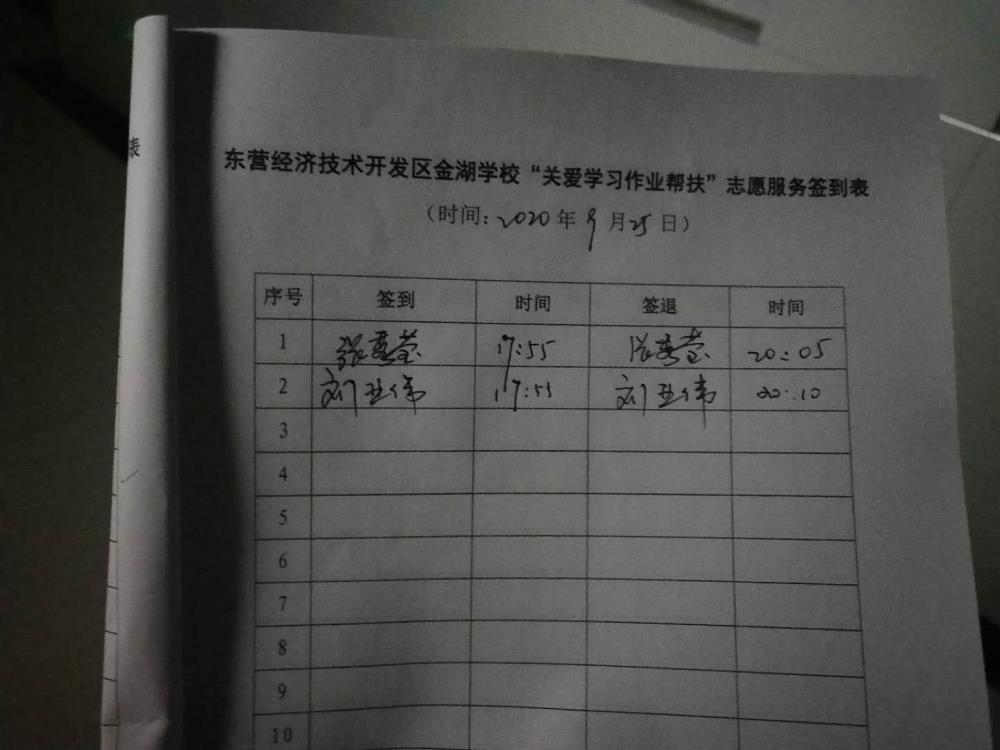 表
东营经济技术开发区金湖学校“关爱学习作业帮扶”志愿服务签到表
（时间：2020年9月25日）
序号 签到 时间 签退 时间
1 17:55 20:05
2 刘亚伟 17:55 刘亚伟 20:10
3
4
5
6
7
8
9
10